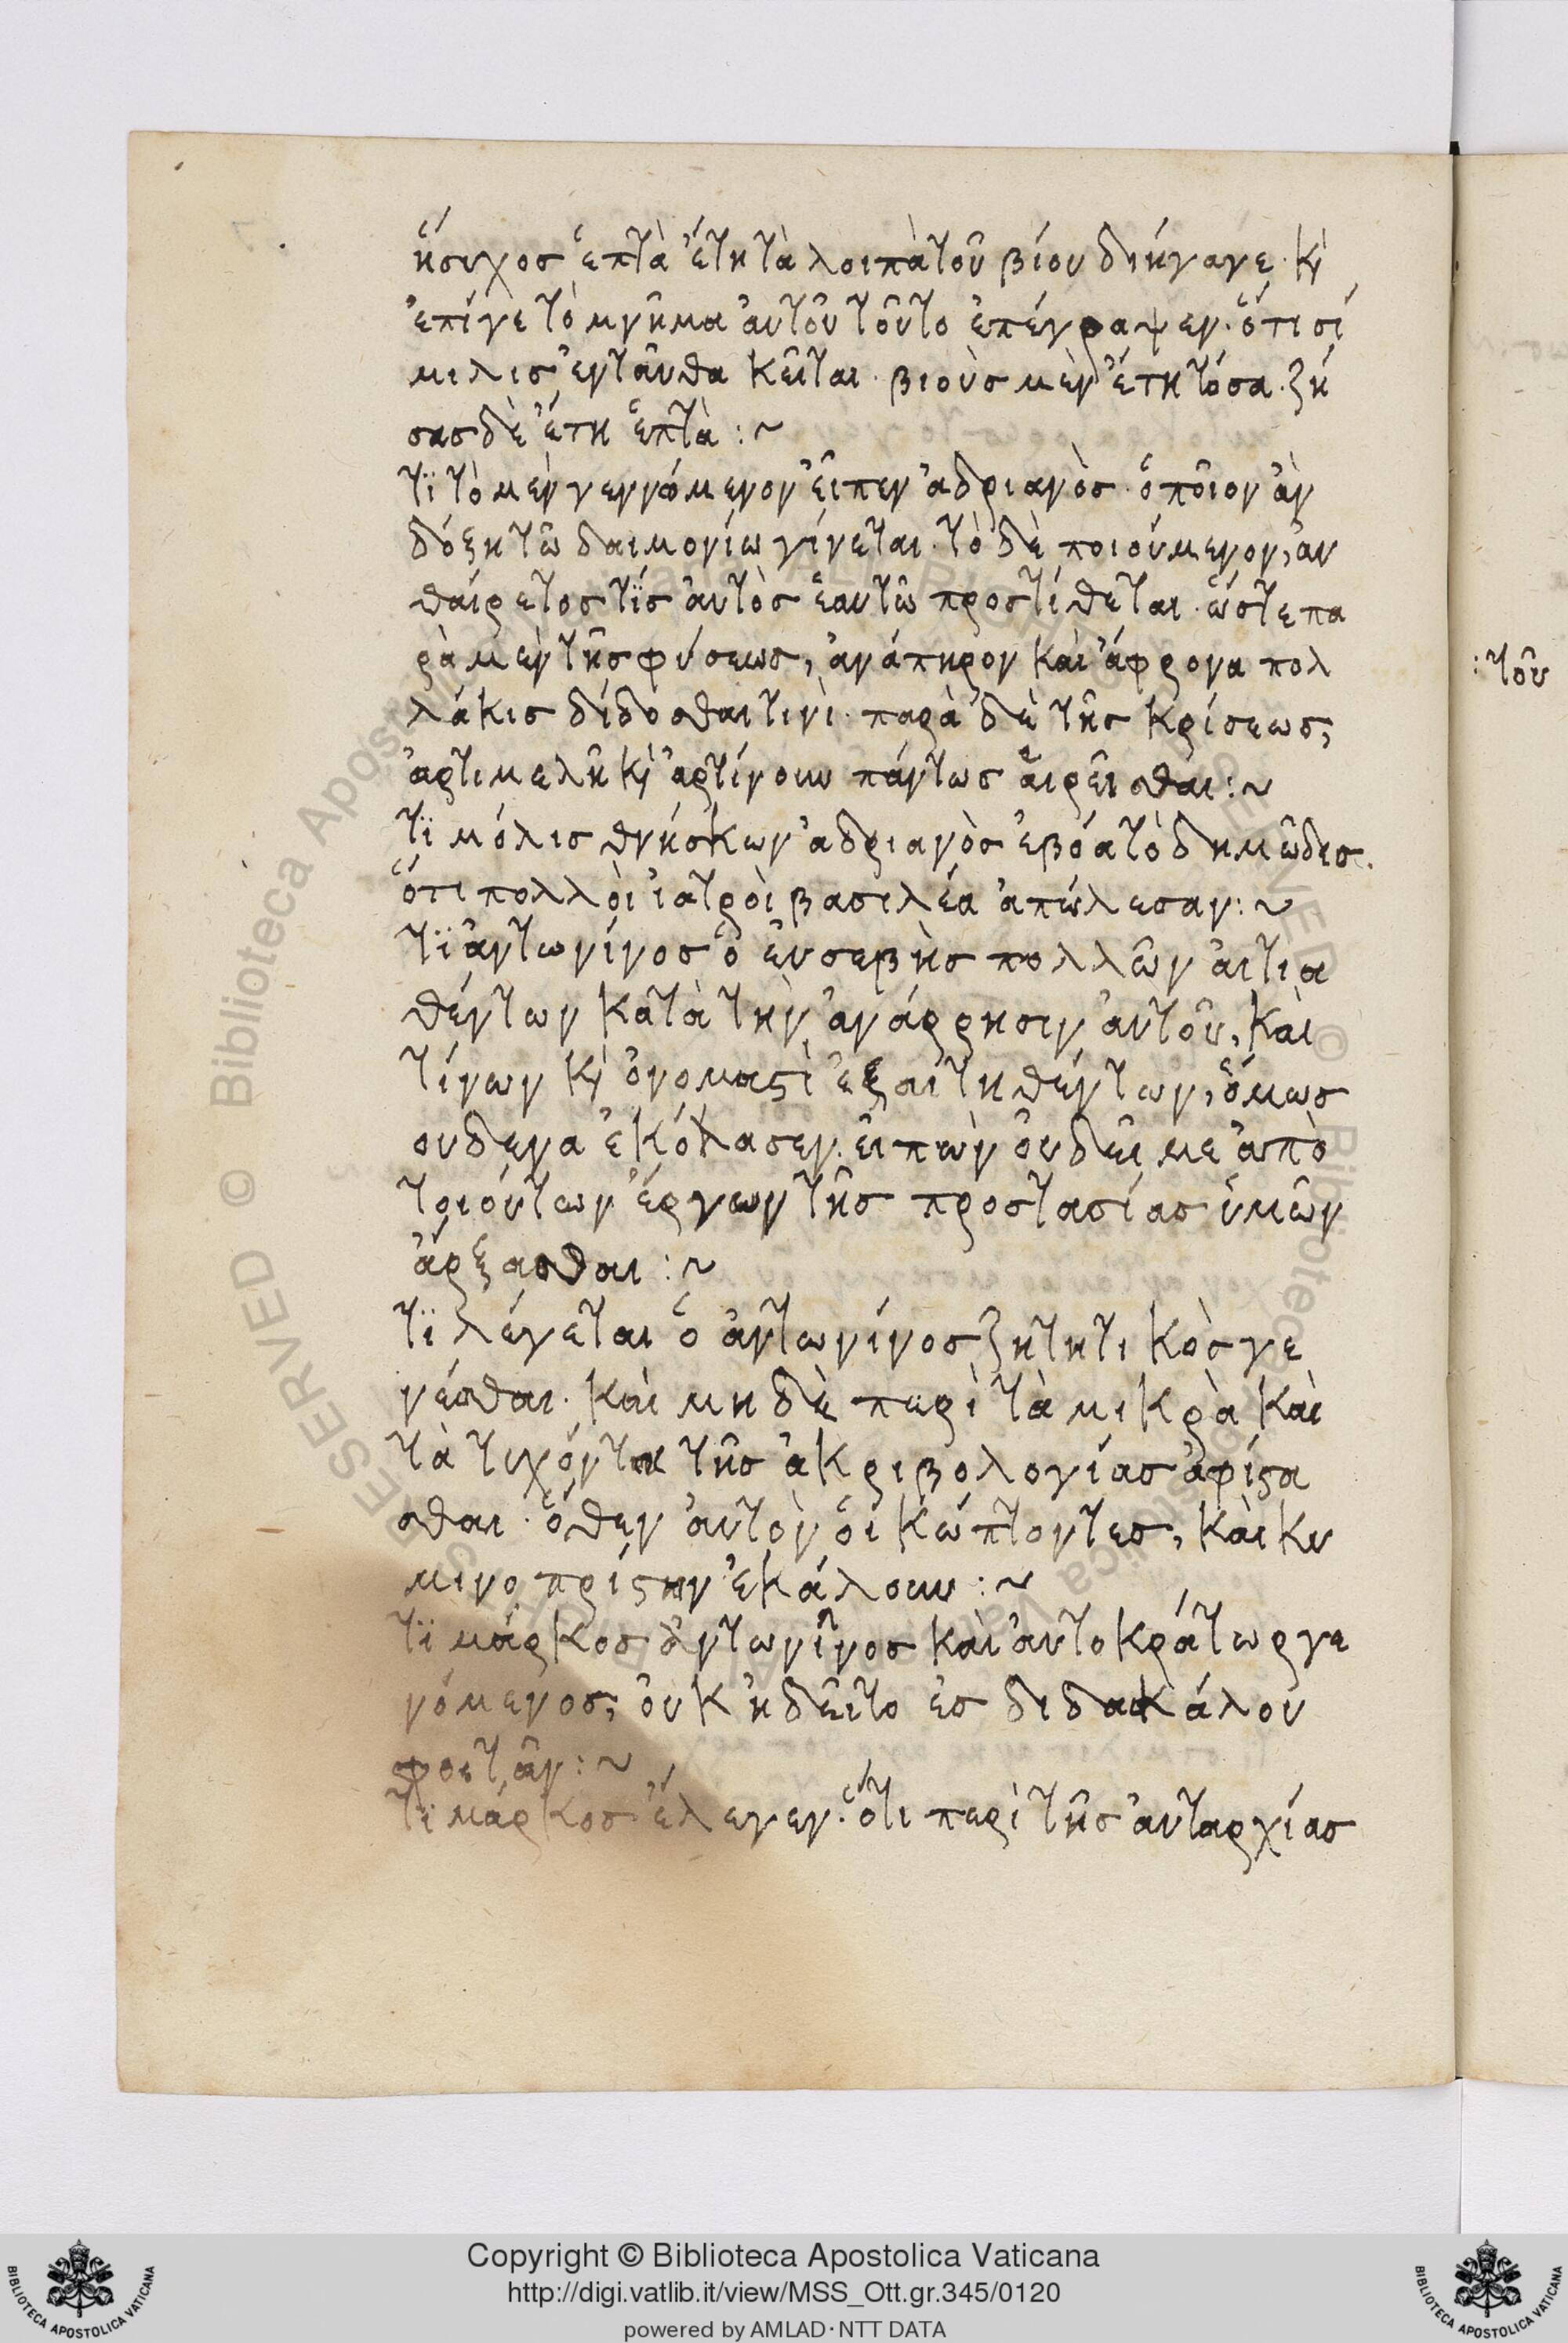 ἥσυχος ἑπτὰ ἔτη τὰ λοιπὰ τοῦ βίου διήγαγε· κ̀
ἐπίγε τὸ μνῆμα ἀυτοῦ τοῦτο ἐπέγραψεν· ὅτι σί
μιλις ἐνταῦθα κεῖται· βιοὺς μὲν ἔτη τόσα· ζή
σας δὲ ἔτη ἑπτὰ :~
τϊ τὸ μὲν γεννώμενον εἶπεν ἀδριανὸς· ὁποῖον ἀν
δόξη τῶ δαιμονίω γίνεται· τὸ δὲ ποιούμενον, ἀυ
θαίρετος τϊς ἀυτὸς ἑαυτῶ προστίθεται· ὥστε πα
ρὰ μὲν τῆς φύσεως, ἀνάπηρον καὶ ἄφρονα πολ
λάκις δίδοσθαι τινὶ· παρὰ δὲ τῆς κρίσεως,
ἀρτιμελῆ κ̀ ἀρτίνουν πάντως αἱρεῖσθαι :~
τϊ μόλις θνήσκων ἀδριανὸς ἐβόα τὸ δημῶδες·
ὅτι πολλοὶ ἰατροὶ βασιλέα ἀπώλεσαν :~
τϊ ἀντωνίνος ὁ ἐυσεβὴς πολλῶν ἀιτια
θέντων κατὰ τὴν ἀνάρρησιν ἀυτοῦ, καὶ
τίνων κ̀ ὀνομαϛὶ ἐξαιτηθέντων, ὅμως
ουδενα ἐκόλασεν· ἐιπὼν ὀυ δεῖ με ἀπὸ
τοιούτων ἔργων τῆς προστασίας ὑμῶν
ἄρξασθαι :~
τϊ λέγεται ὁ ἀντωνίνος ζητητικὸς γε
νέσθαι· καὶ μηδὲ περὶ τὰ μικρὰ καὶ
τὰ τυχόντα τῆς ἀκριβολογίας ἀφίϛα
σθαι· ὅθεν ἀυτὸν ὁι κώπτοντες, καὶ κυ
μινοπρίϛην ἐκάλουν :~
τϊ μάρκος ἀντωνῖνος καὶ ἀυτοκράτωρ γε
νόμενος, ὀυκ ἠδεῖτο ἐς διδασκάλου
φοιτᾶν :~
τϊ μάρκος ἔλεγεν· ὅτι περὶ τῆς ἀυταρχίας
:τοῦ
Copyright © Biblioteca Apostolica Vaticana
http://digi.vatlib.it/view/MSS_Ott.gr.345/0120
powered by AMLAD·NTT DATA